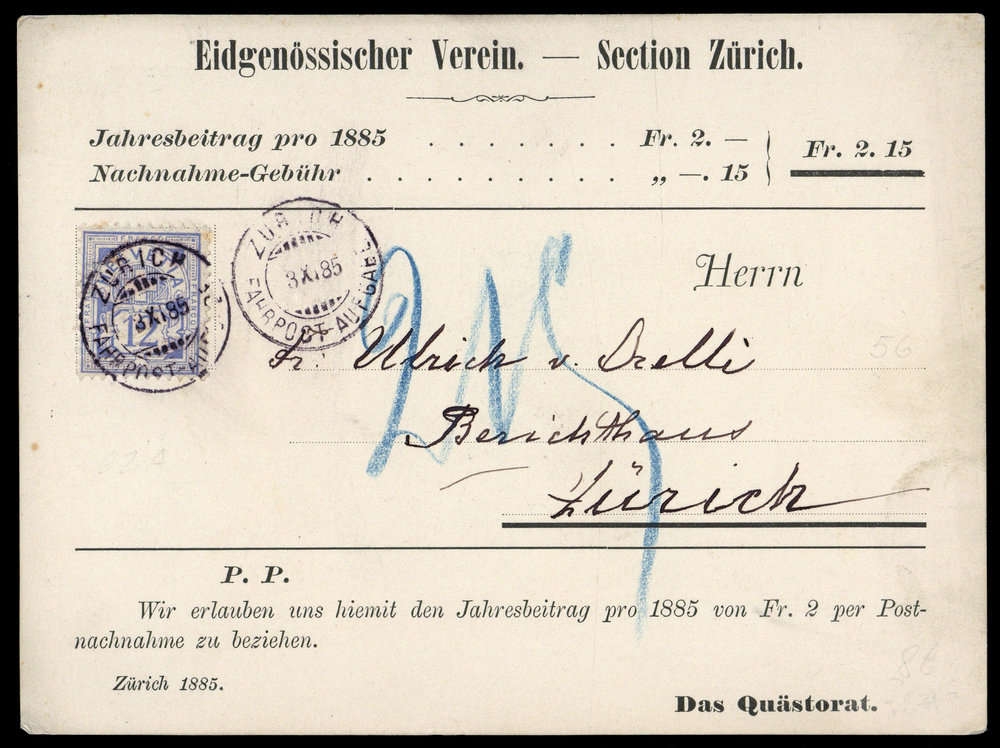 Eidgenössischer Verein. — Section Zürich.
Jahresbeitrag pro 1885 . . . . . . . Fr. 2. —
Nachnahme-Gebühr . . . . . . . . . . „ —. 15
Fr. 2. 15
ZÜRICH
3 XI 85
FAHRPOST-AUFGABE
ZÜRICH
3 XI 85
FAHRPOST-AUFGABE
12
Herrn
Dr. Ulrich v. Orelli
Berichthaus
Zürich
56
P. P.
Wir erlauben uns hiemit den Jahresbeitrag pro 1885 von Fr. 2 per Post-
nachnahme zu beziehen.
Zürich 1885.
Das Quästorat.